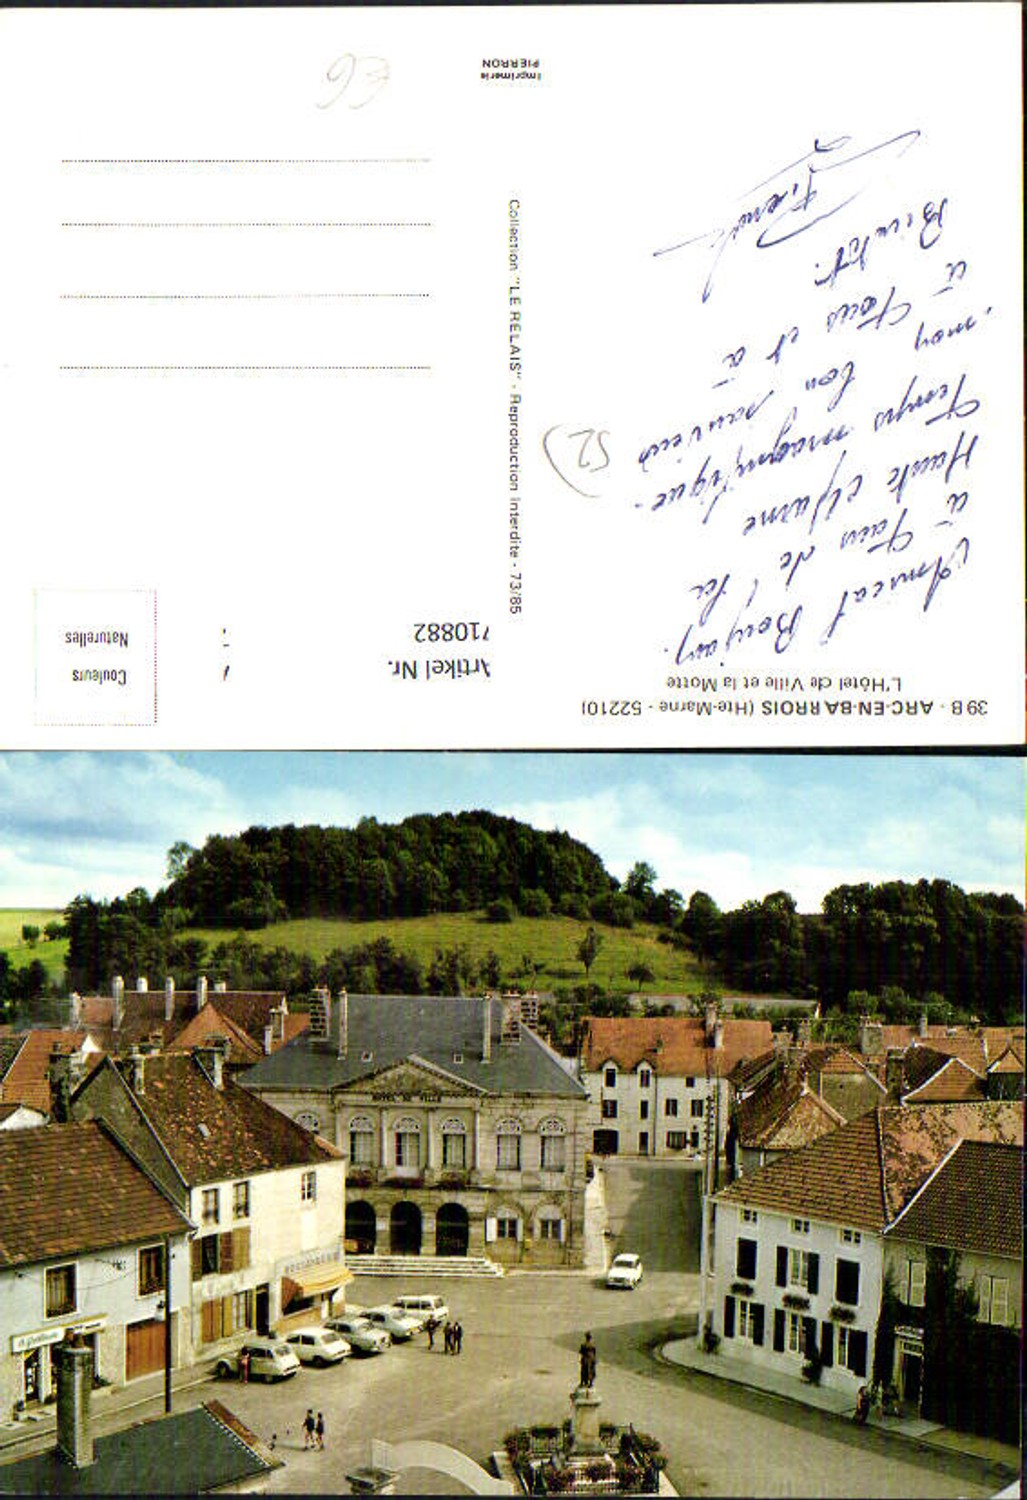 39 B - ARC-EN-BARROIS (Hte-Marne - 52210)
L'Hôtel de Ville et la Motte
Amical Bonjour
à Tous de la
Haute Marne
Temps magnifique.
mon bon souvenir
à Tous et à
Bientôt.
52
Collection "LE RELAIS" - Reproduction Interdite - 73/85
Imprimerie
PIERRON
Artikel Nr.
710882
Couleurs
Naturelles
€6
HOTEL DE VILLE